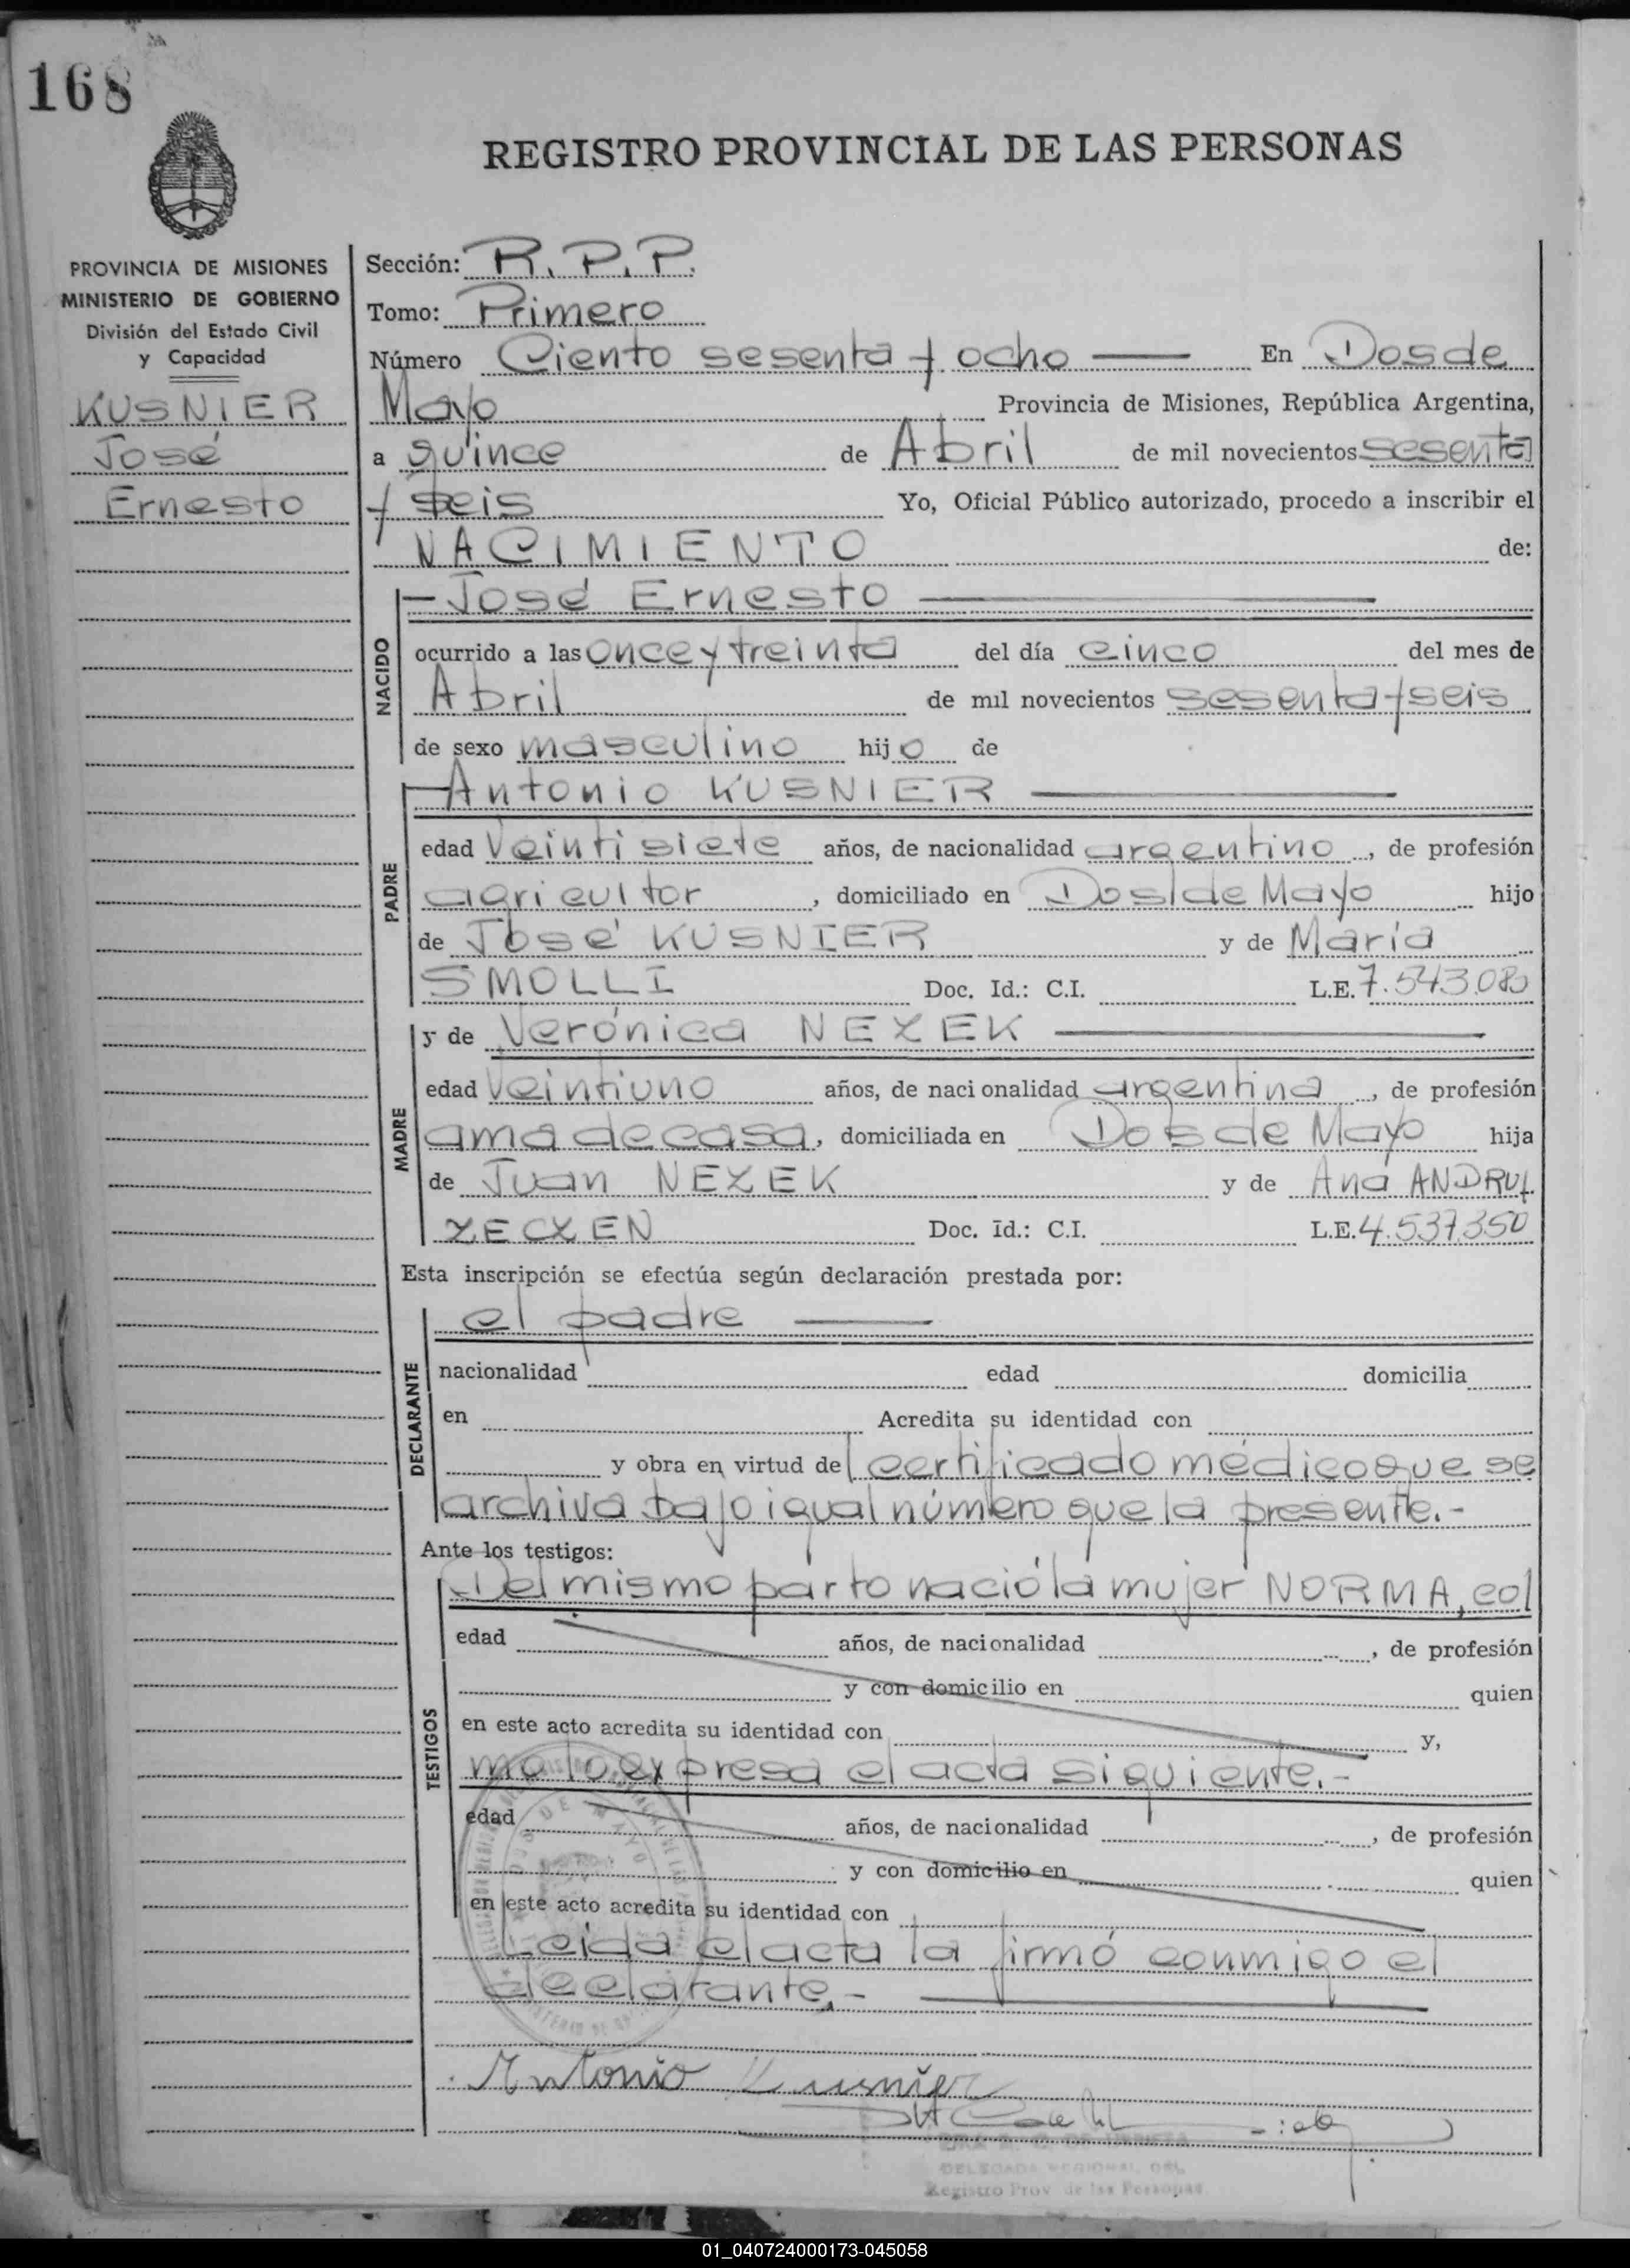 168
REGISTRO PROVINCIAL DE LAS PERSONAS
PROVINCIA DE MISIONES
MINISTERIO DE GOBIERNO
División del Estado Civil
y Capacidad
KUSNIER
José
Ernesto
Sección: R.P.P.
Tomo: Primero
Número Ciento sesenta y ocho En Dos de
Mayo Provincia de Misiones, República Argentina,
a quince de Abril de mil novecientos sesenta
y seis Yo, Oficial Público autorizado, procedo a inscribir el
NACIMIENTO de:
NACIDO
José Ernesto
ocurrido a las once y treinta del día cinco del mes de
Abril de mil novecientos sesenta y seis
de sexo masculino hijo de
PADRE
Antonio KUSNIER
edad veintisiete años, de nacionalidad argentino, de profesión
agricultor, domiciliado en Dos de Mayo hijo
de José KUSNIER y de María
SMOLLI Doc. Id.: C.I. L.E. 7.543.080
MADRE
y de Verónica NEZEK
edad veintiuno años, de nacionalidad argentina, de profesión
ama de casa, domiciliada en Dos de Mayo hija
de Juan NEZEK y de Ana ANDRUS
ZECZEN Doc. Id.: C.I. L.E. 4.537.350
Esta inscripción se efectúa según declaración prestada por:
DECLARANTE
el padre
nacionalidad edad domicilia
en Acredita su identidad con
y obra en virtud del certificado médico que se
archiva bajo igual número que la presente.-
Ante los testigos:
TESTIGOS
Del mismo parto nació la mujer NORMA, col
edad años, de nacionalidad , de profesión
y con domicilio en quien
en este acto acredita su identidad con y,
mo lo expresa el acta siguiente.-
edad años, de nacionalidad , de profesión
y con domicilio en quien
en este acto acredita su identidad con
Leida el acta la firmó conmigo el
declarante.-
Antonio Kusnier
DELEGADA REGIONAL DEL
Registro Prov. de las Personas
01_040724000173-045058